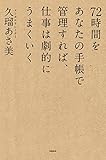 72時間を
あなたの手帳で
管理すれば、
仕事は劇的に
うまくいく
久瑠あさ美